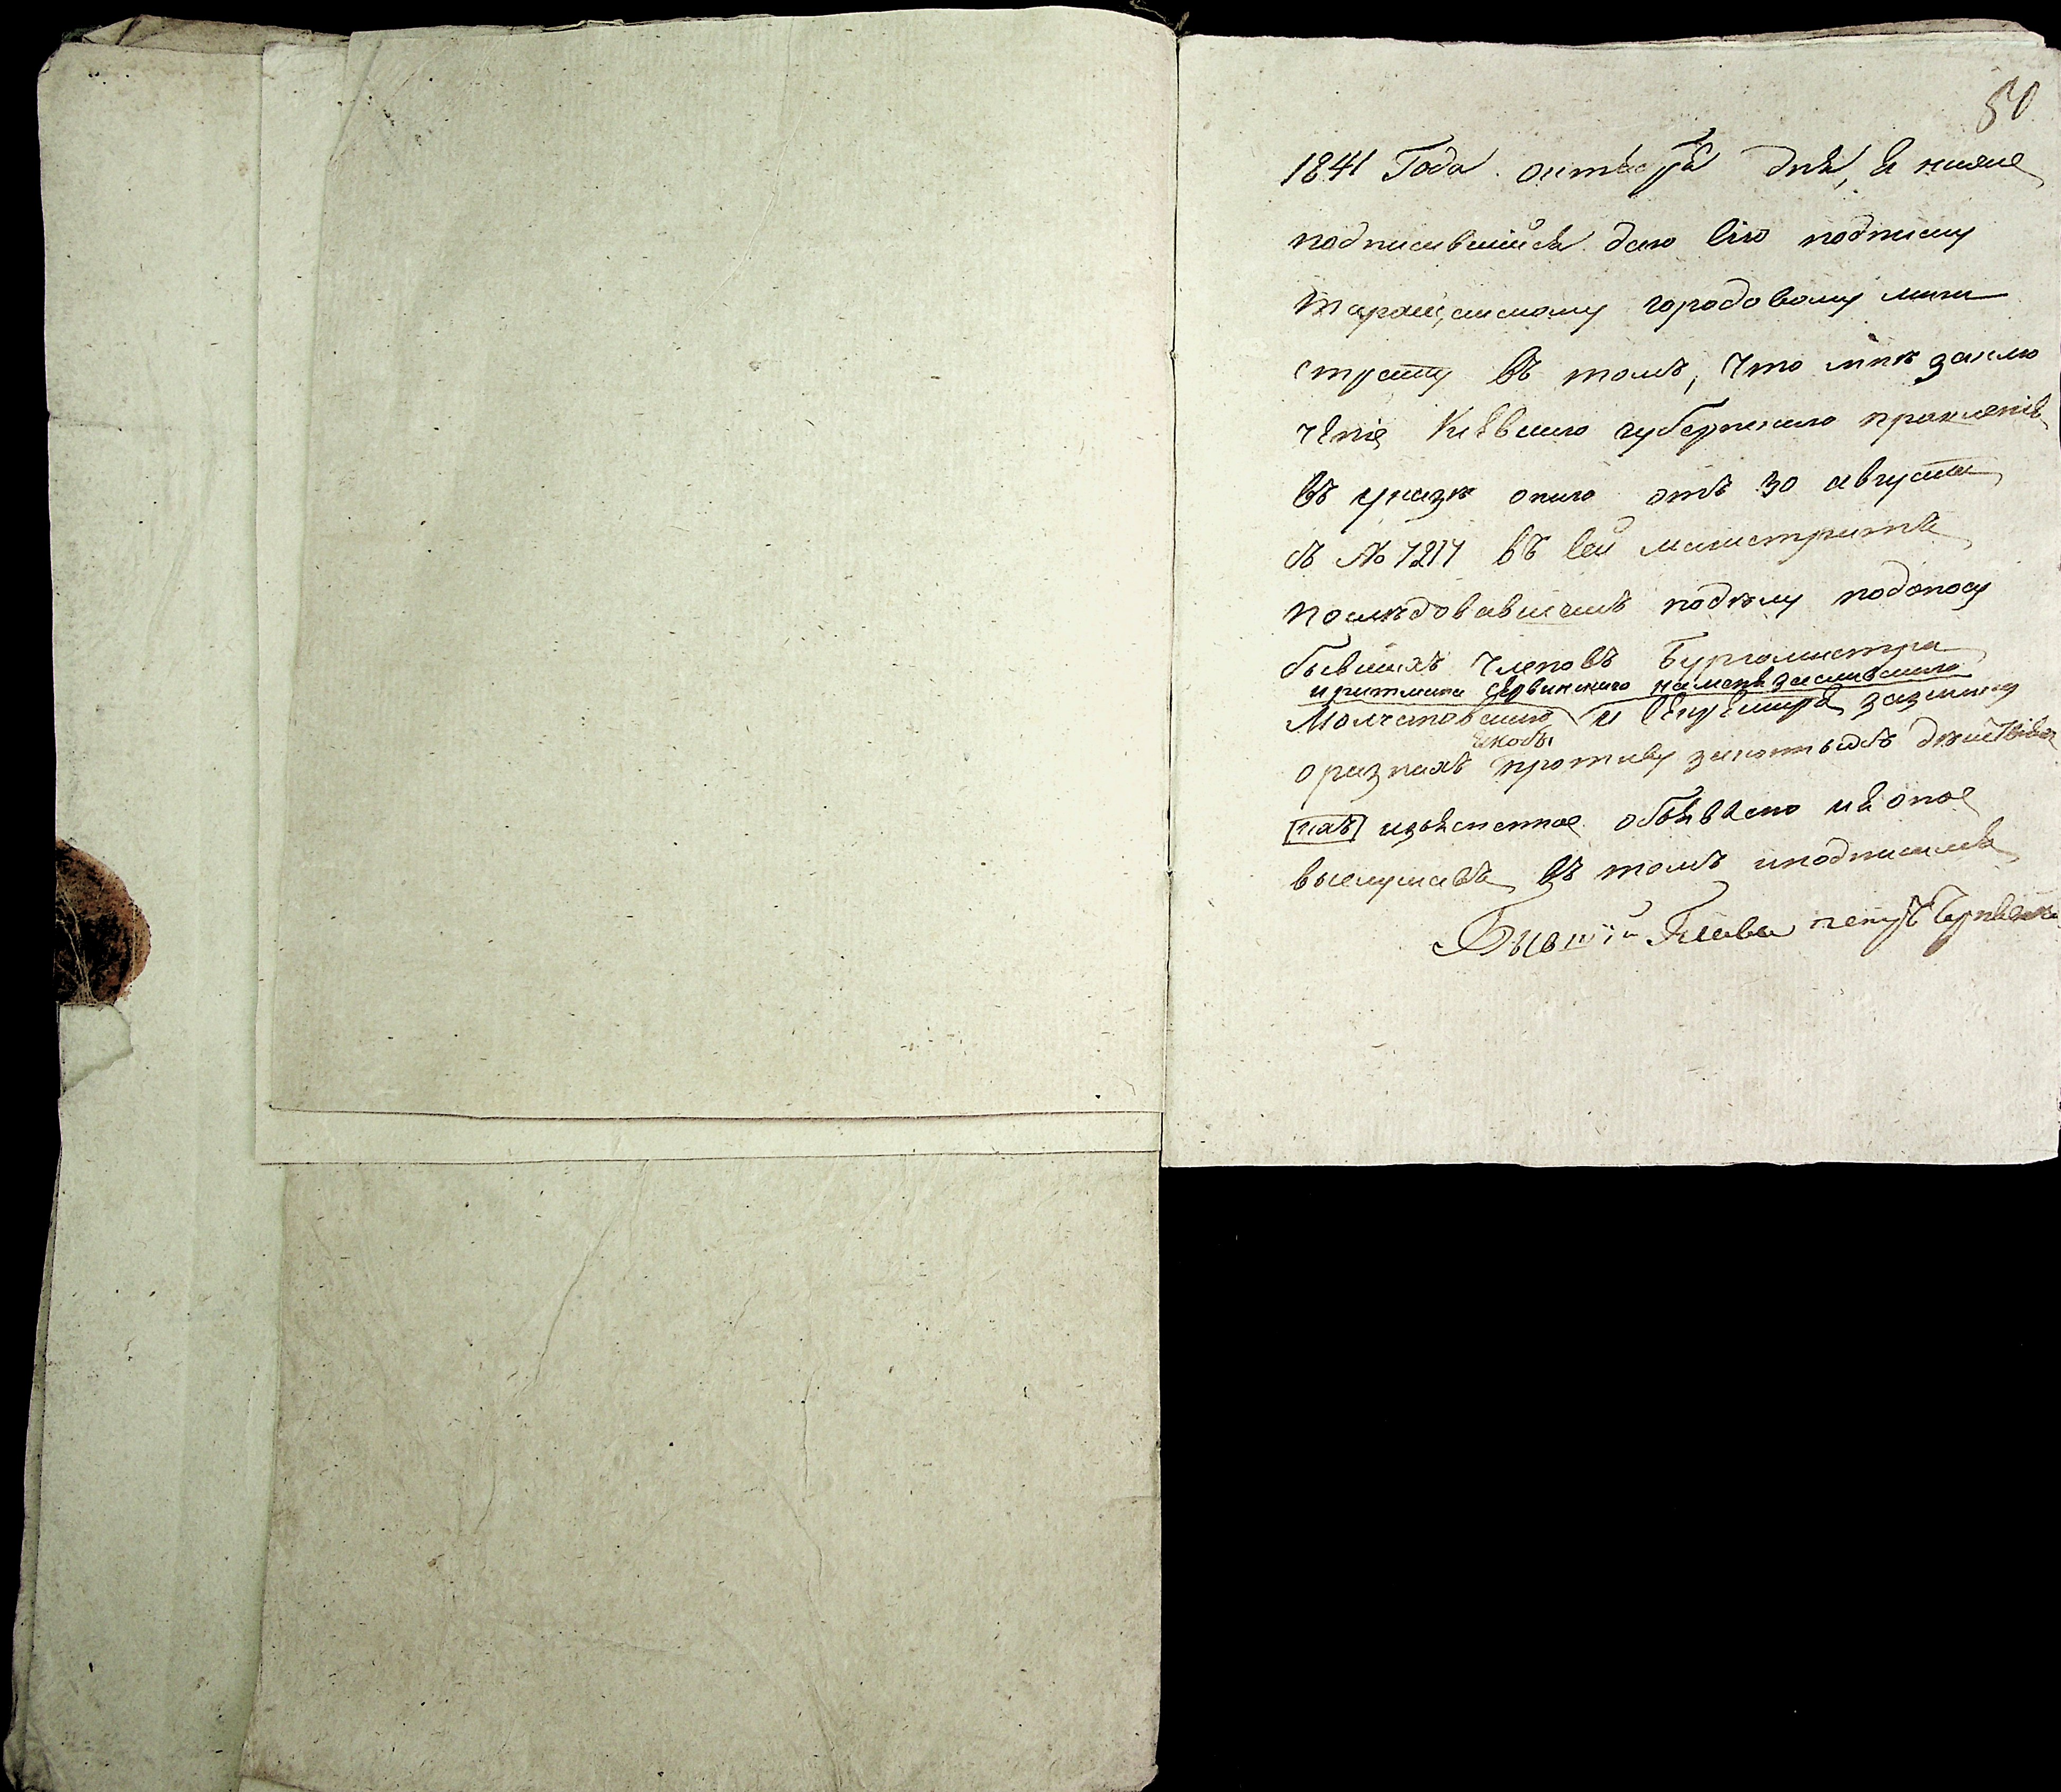 50
1841 Года октября дня, я ниже
подписавшийся даю сию подписку
таращанскому городовому маги
страту въ томъ, что мнѣ заклю
ченіе Кіевского губернского правленія
въ указѣ оного отъ 30 августа
съ № 7217 въ сей магистратъ
последовавшемъ поделу подоносу
бывшихъ членовъ Бургомистра
иратмана намѣня
и
якобы
о разныхъ противу законныхъ действія
[ихъ] изъясненное объявлено ия оное
выслушавъ въ томъ иподписался
Бывшій Глава петръ